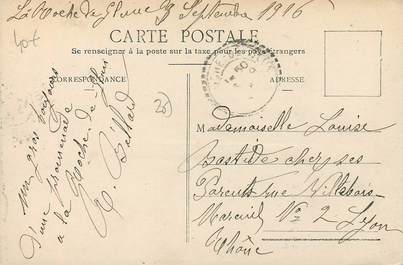 La Roche de Glun 3 Septembre 1916
40f
CARTE POSTALE
Se renseigner à la poste sur la taxe pour les pays étrangers
CORRESPONDANCE
ADRESSE
un gros toujours
d'une promenade
a la Roche de Glun
Mademoiselle Louise
Bastide chez ses
Parents rue Villebois-
Mareuil No 2 Lyon
Rhône